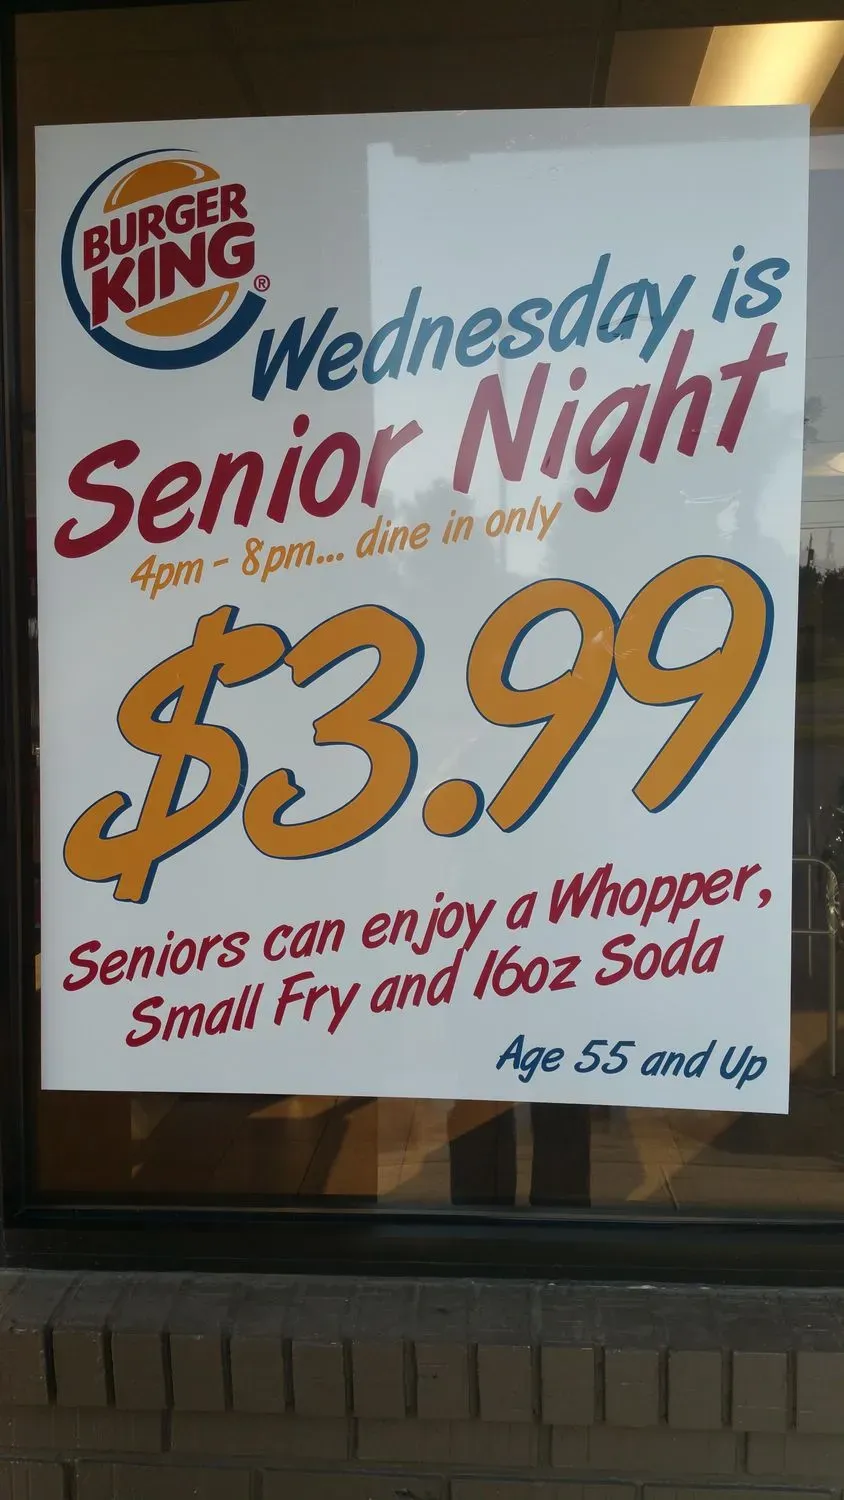 BURGER
KING®
Wednesday is
Senior Night
4pm - 8pm... dine in only
$3.99
Seniors can enjoy a Whopper,
Small Fry and 16oz Soda
Age 55 and Up